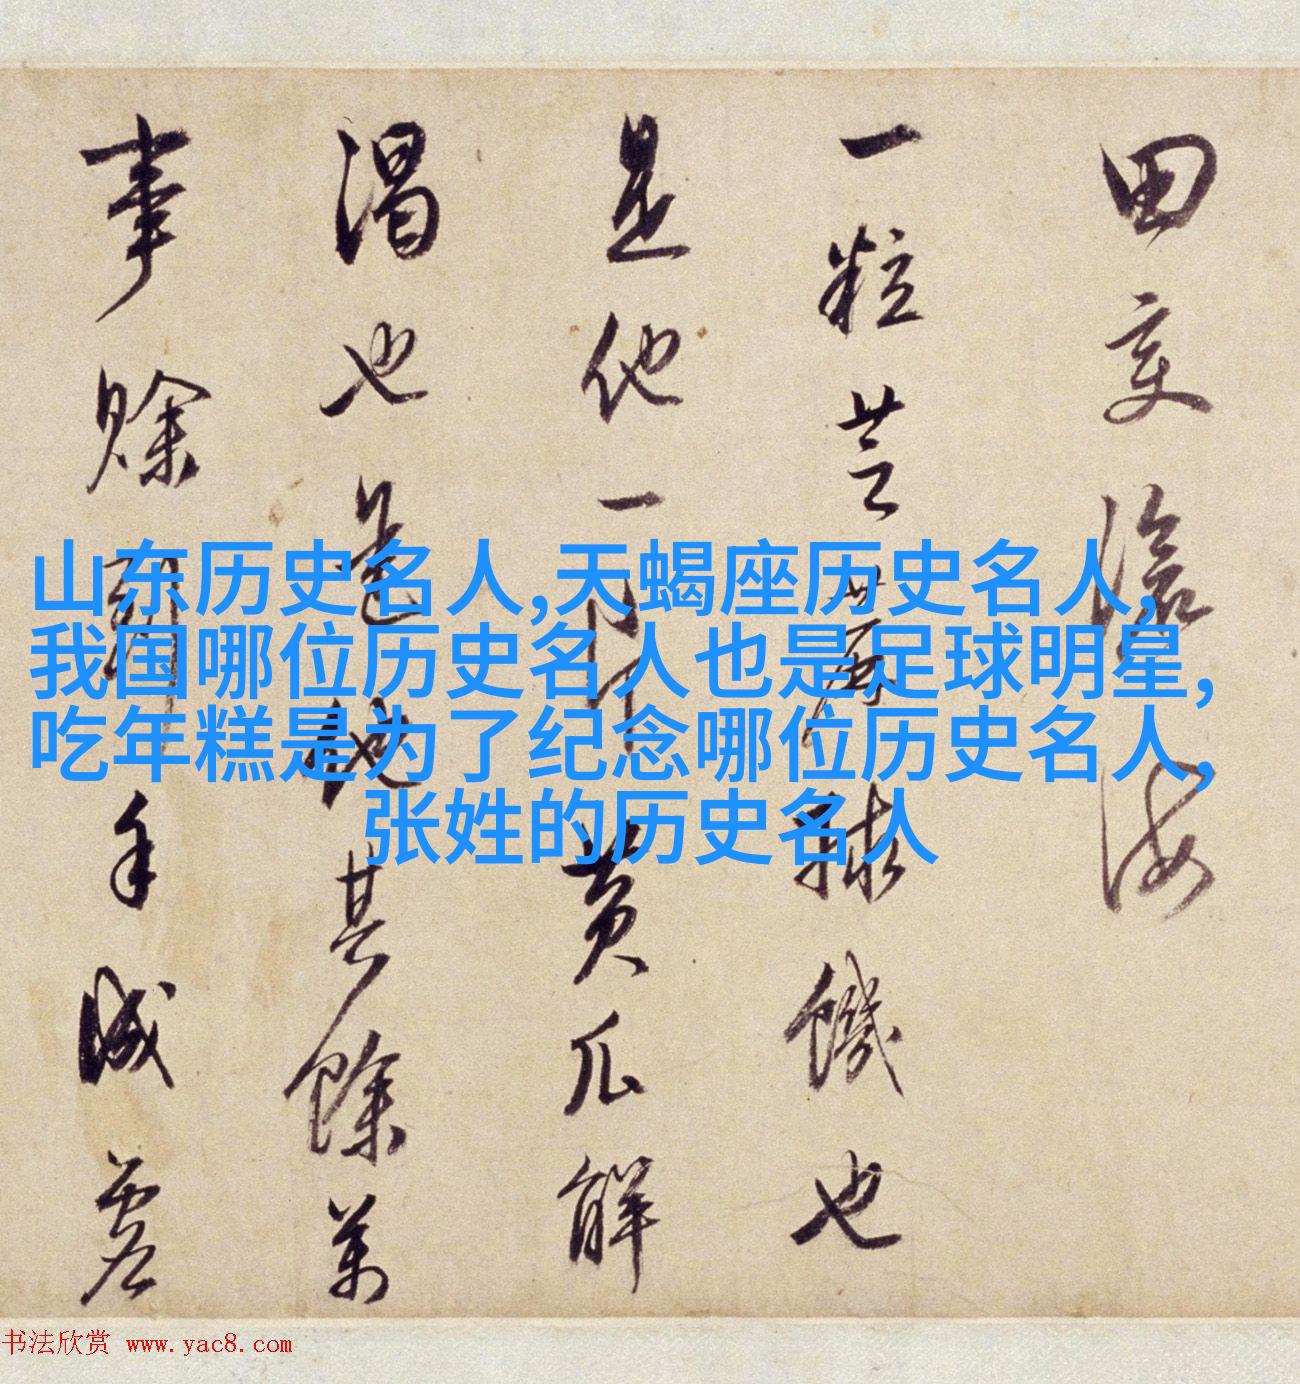 田变滄海
一粒芝蔴捄饑也
是他一黄瓜解
渴也是他其餘萬
事賖手
山东历史名人,天蝎座历史名人,
我国哪位历史名人也是足球明星,
吃年糕是为了纪念哪位历史名人,
张姓的历史名人
书法欣赏 www.yac8.com